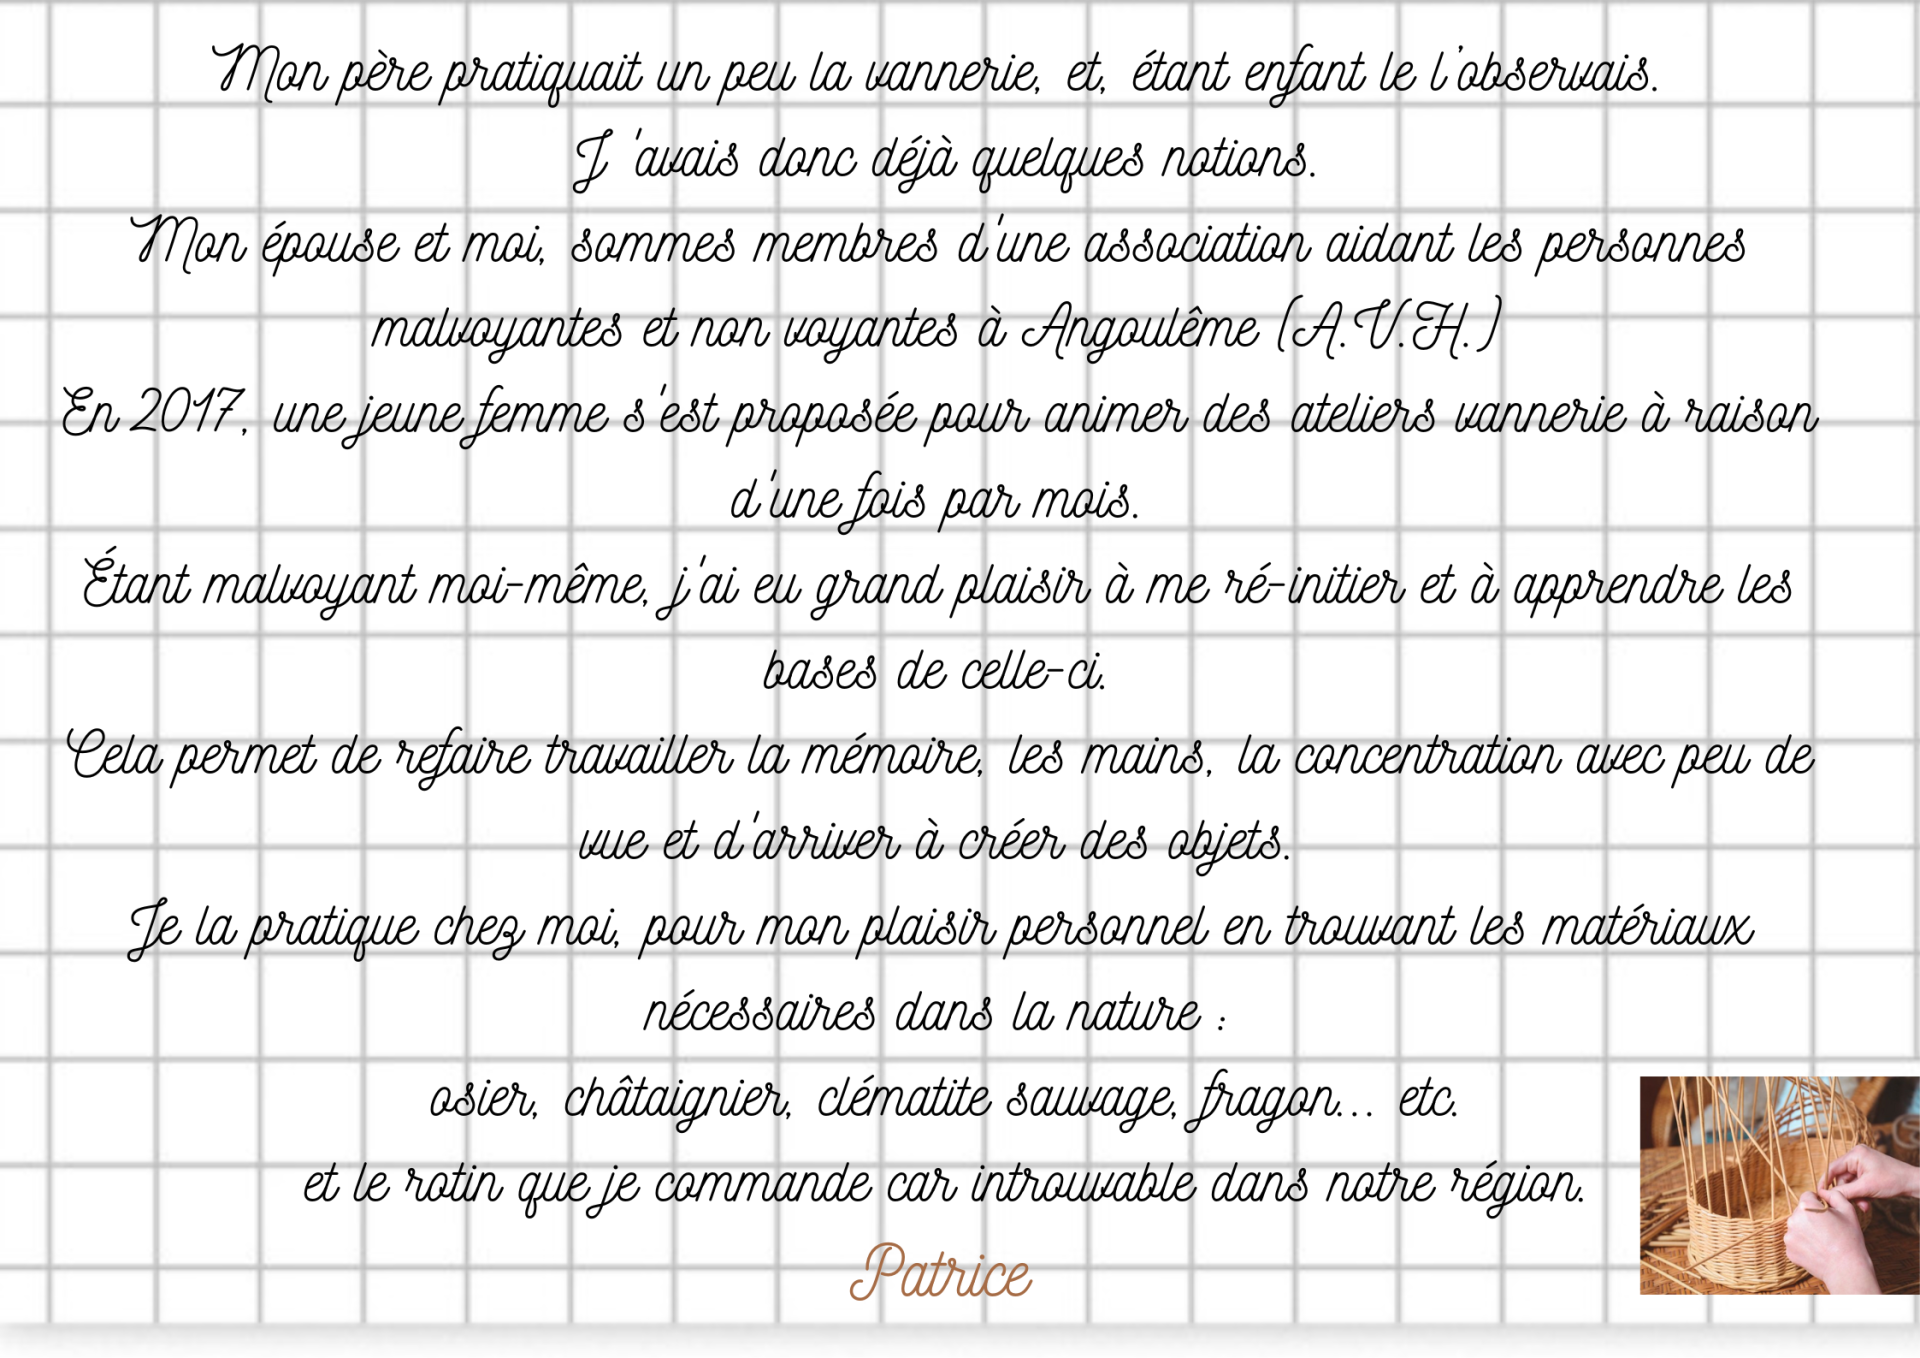 Mon père pratiquait un peu la vannerie, et, étant enfant le l'observais.
J 'avais donc déjà quelques notions.
Mon épouse et moi, sommes membres d'une association aidant les personnes
malvoyantes et non voyantes à Angoulême (A.V.H.)
En 2017, une jeune femme s'est proposée pour animer des ateliers vannerie à raison
d'une fois par mois.
Étant malvoyant moi-même, j'ai eu grand plaisir à me ré-initier et à apprendre les
bases de celle-ci.
Cela permet de refaire travailler la mémoire, les mains, la concentration avec peu de
vue et d'arriver à créer des objets.
Je la pratique chez moi, pour mon plaisir personnel en trouvant les matériaux
nécessaires dans la nature :
osier, châtaignier, clématite sauvage, fragon... etc.
et le rotin que je commande car introuvable dans notre région.
Patrice